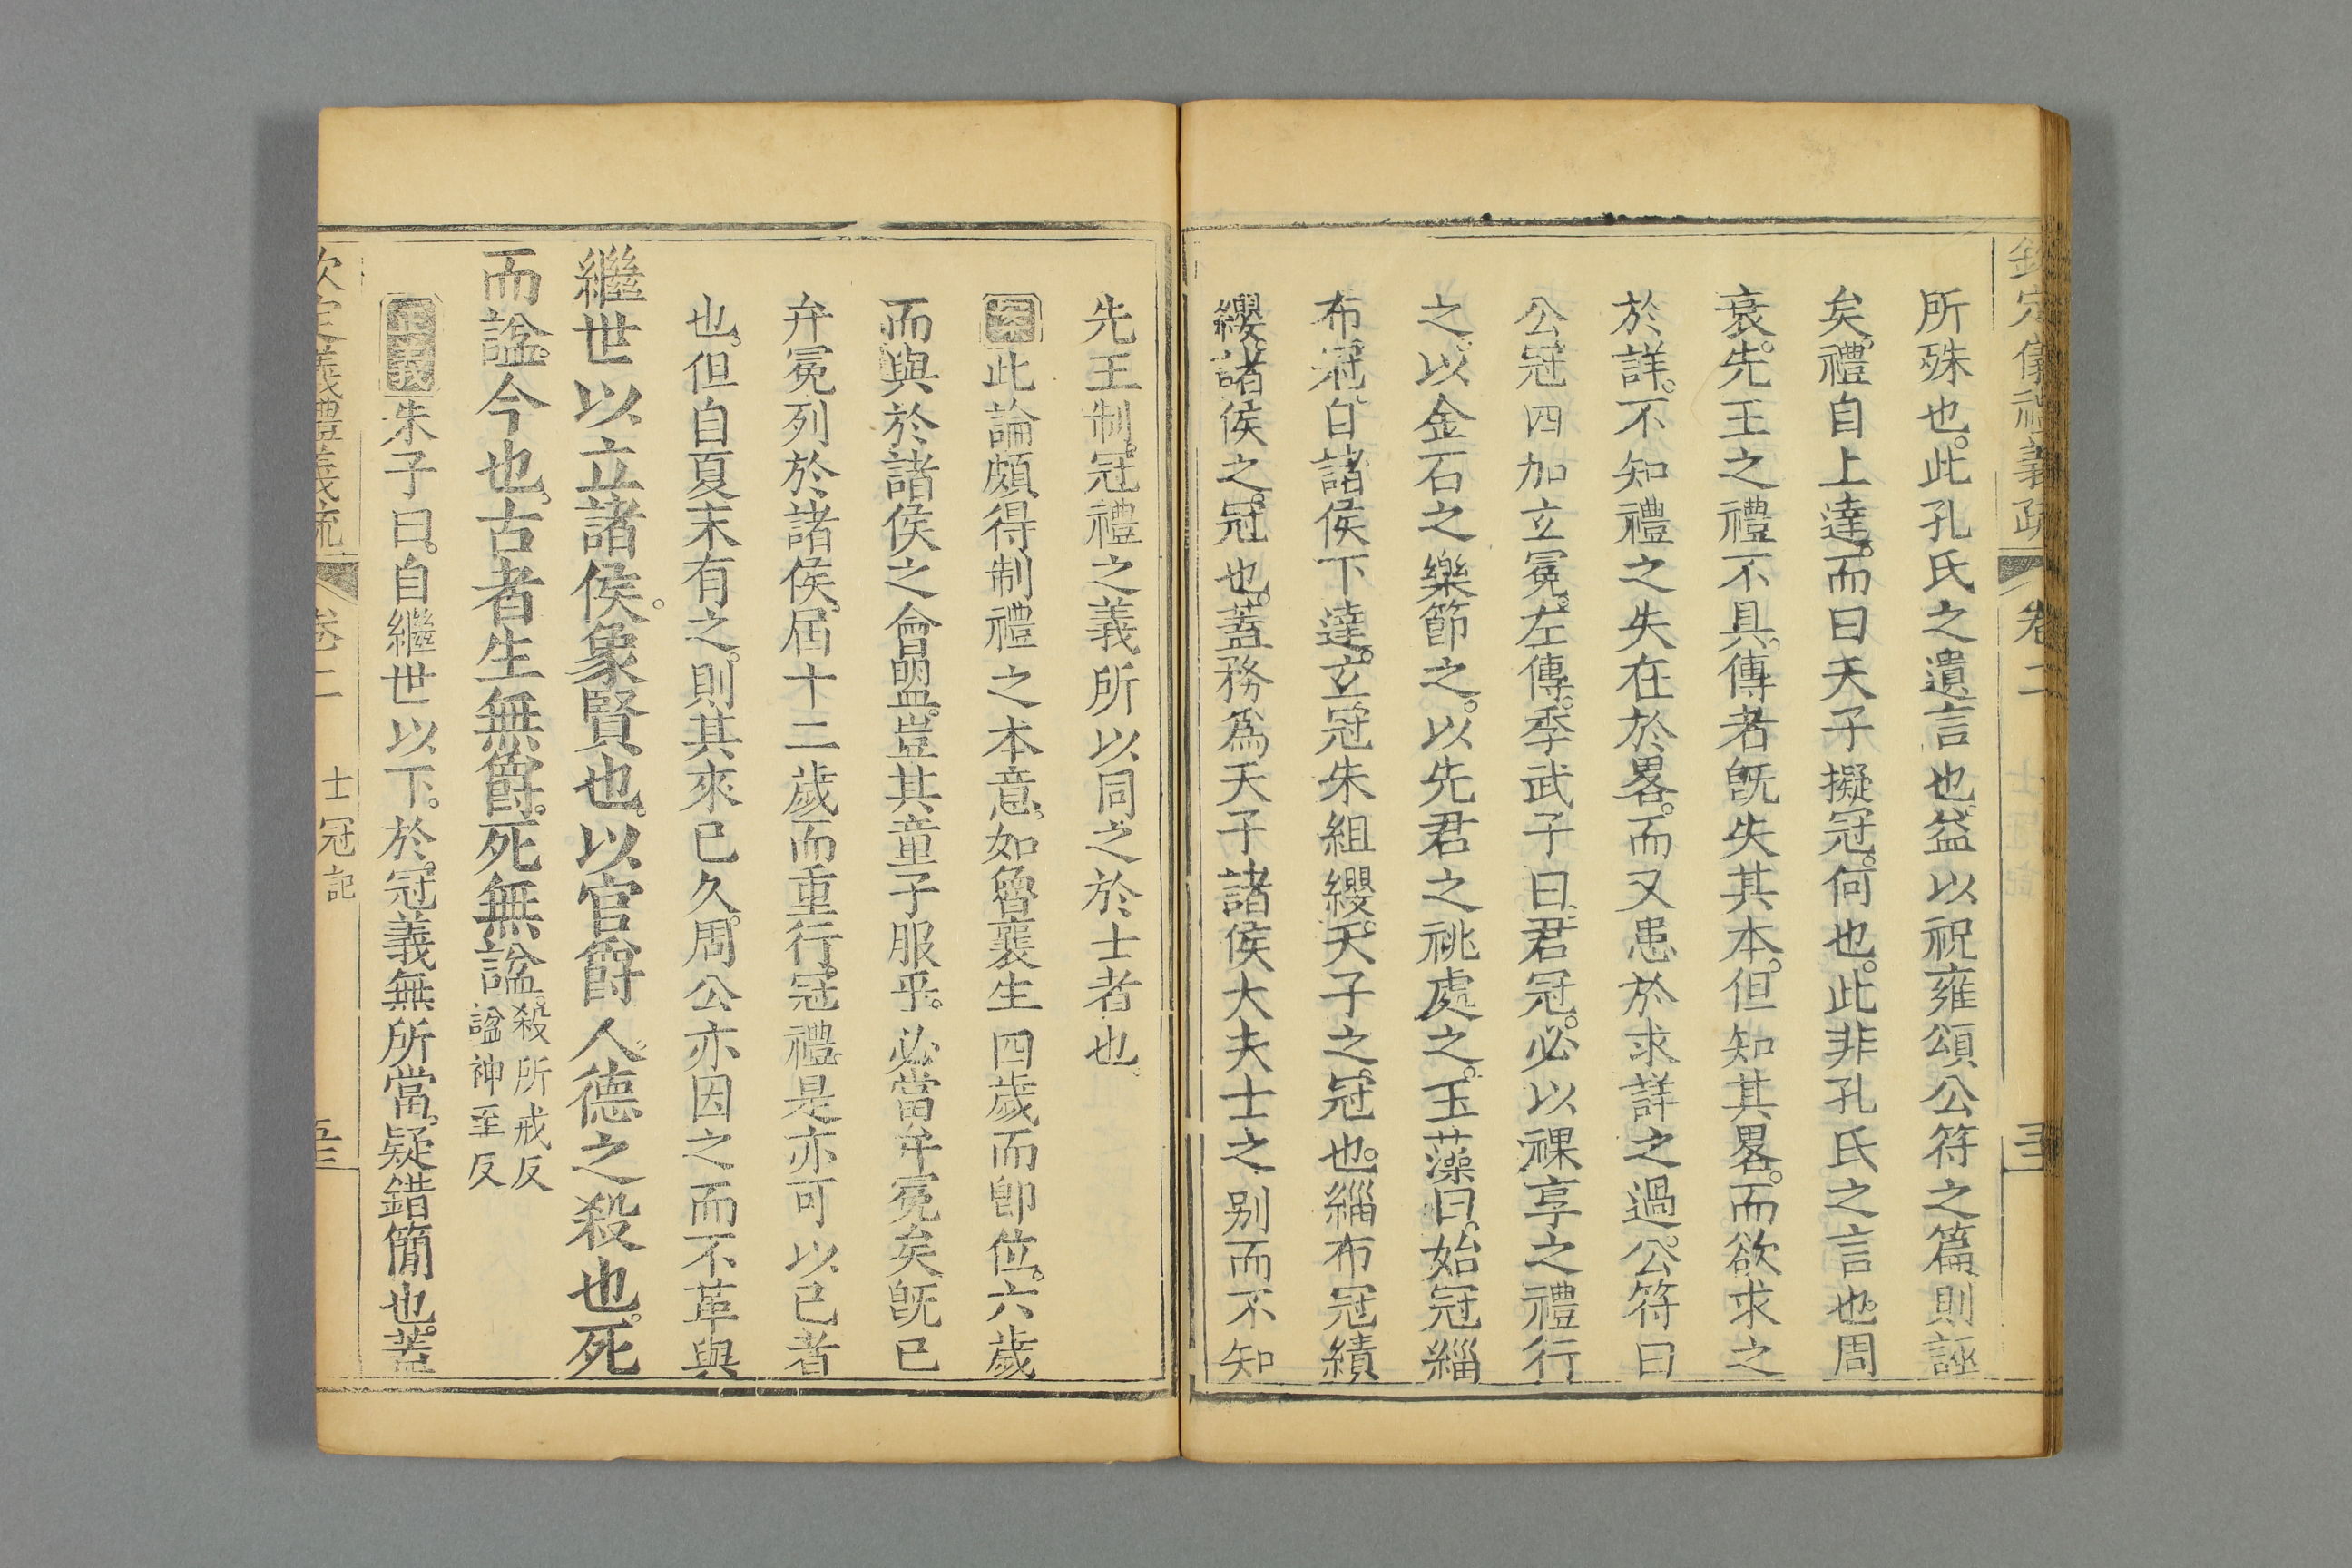 欽定儀禮義疏 卷二
所殊也。此孔氏之遺言也。益以祝雍頌公符之篇則誣
矣。禮自上達。而曰天子擬冠。何也。此非孔氏之言也。周
衰。先王之禮不具。傳者旣失其本。但知其畧。而欲求之
於詳。不知禮之失在於畧。而又患於求詳之過。公符曰
公冠四加玄冕。左傳。季武子曰。君冠。必以祼享之禮行
之。以金石之樂節之。以先君之祧處之。玉藻曰。始冠緇
布冠。自諸侯下達。玄冠朱組纓。天子之冠也。緇布冠繢
纓。諸侯之冠也。蓋務爲天子諸侯大夫士之別而不知
先王制。冠禮之義所以同之於士者也。
案此論頗得制禮之本意。如魯襄生四歲而卽位。六歲
而與於諸侯之會盟。豈其童子服乎。必當弁冕矣旣已
弁冕列於諸侯。屆十二歲而重行冠禮是亦可以已者
也。但自夏末有之。則其來已久。周公亦因之而不革與
繼世以立諸侯。象賢也。以官爵人。德之殺也。死
而諡。今也。古者生無爵。死無諡。殺所戒反
諡神至反
正義朱子曰。自繼世以下。於冠義無所當。疑錯簡也。蓋
欽定義禮義疏 卷二 士冠記 五三